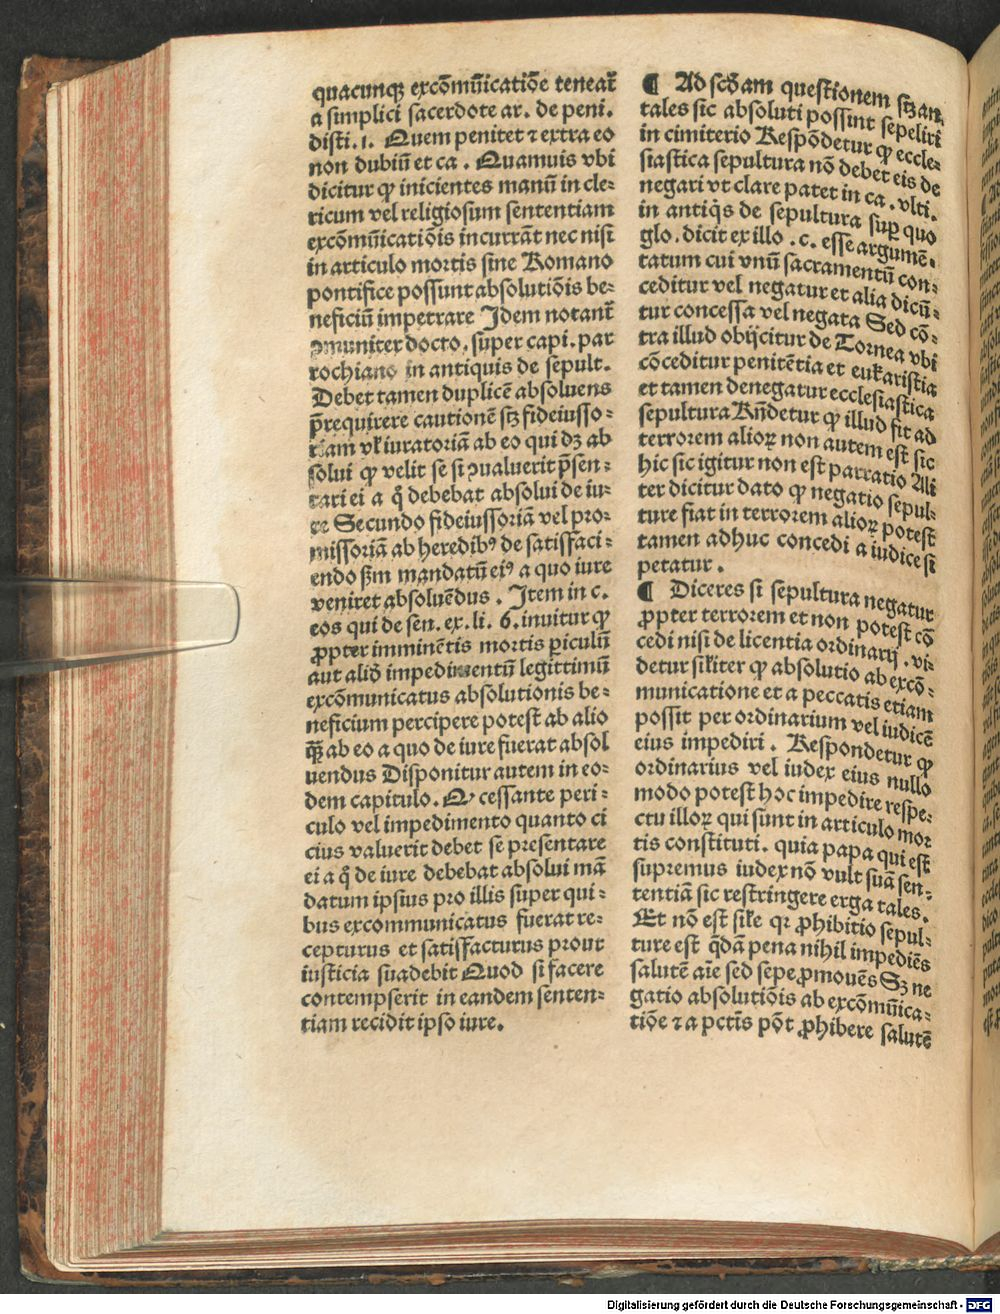 quacunqꝫ excōmūicatiōe teneat᷑
a simplici sacerdote ar. de peni.
disti.1. Quem penitet ⁊ extra eo
non dubiū et ca. Quamuis vbi
dicitur ꝙ inicientes manū in cle⸗
ricum vel religiosum sententiam
excōmūicatiōis incurrāt nec nisi
in articulo mortis sine Romano
pontifice possunt absolutiōis be⸗
neficiū impetrare Idem notant᷑
ꝯmuniter docto. super capi. par
rochiano in antiquis de sepult.
Debet tamen duplicē absoluens
p̄requirere cautionē sꝫ fideiusso⸗
riam vl̓ iuratoriā ab eo qui dꝫ ab
solui ꝙ velit se si ꝯualuerit p̄sen⸗
tari ei a q̊ debebat absolui de iu⸗
re Secundo fideiussoriā vel pro⸗
missoriā ab heredibꝰ de satisfaci⸗
endo sm̄ mandatū eiꝰ a quo iure
veniret absoluēdus. Item in c.
eos qui de sen. ex. li. 6. inuitur ꝙ
ꝓpter imminētis mortis ꝑiculū
aut aliḋ impedimentū legittimū
excōmunicatus absolutionis be⸗
neficium percipere potest ab alio
qȝ̄ ab eo a quo de iure fuerat absol
uendus Disponitur autem in eo⸗
dem capitulo. Q cessante peri⸗
culo vel impedimento quanto ci
cius valuerit debet se presentare
ei a q̊ de iure debebat absolui mā
datum ipsius pro illis super qui⸗
bus excommunicatus fuerat re⸗
cepturus et satisfacturus prout
iusticia suadebit Quod si facere
contempserit in eandem senten⸗
tiam recidit ipso iure.
¶ Ad scḋam questionem sꝫ an
tales sic absoluti possint sepeliri
in cimiterio Respōdetur ꝙ eccle⸗
siastica sepultura nō debet eis de
negari vt clare patet in ca. vlti.
in antiq̇s de sepultura sup̲ quo
glo. dicit ex illo .c. esse argumē⸗
tatum cui vnū sacramentū con⸗
ceditur vel negatur et alia dicū⸗
tur concessa vel negata Sed cō⸗
tra illud obijcitur de Tornea vbi
cōceditur penitētia et eukaristia
et tamen denegatur ecclesiastica
sepultura Rn̄detur ꝙ illud fit ad
terrorem alioꝝ non autem est sic
hic sic igitur non est par ratio Ali
ter dicitur dato ꝙ negatio sepul⸗
ture fiat in terrorem alioꝝ potest
tamen adhuc concedi a iudice si
petatur.
¶ Diceres si sepultura negatur
ꝓpter terrorem et non potest cō
cedi nisi de licentia ordinarij. vi⸗
detur sil̓iter ꝙ absolutio ab excō⸗
municatione et a peccatis etiam
possit per ordinarium vel iudicē
eius impediri. Respondetur ꝙ
ordinarius vel iudex eius nullo
modo potest hoc impedire respe⸗
ctu illoꝝ qui sunt in articulo mor
tis constituti. quia papa qui est
supremus iudex nō vult suā sen⸗
tentiā sic restringere erga tales.
Et nō est sil̓e qꝛ ꝓhibitio sepul⸗
ture est q̄dā pena nihil impediēs
salutē aīe sed sepe ꝓmouēs Sꝫ ne
gatio absolutiōis ab excōmūica⸗
tiōe ⁊ a pctīs pōt ꝓhibere salutē
Digitalisierung gefördert durch die Deutsche Forschungsgemeinschaft - DFG